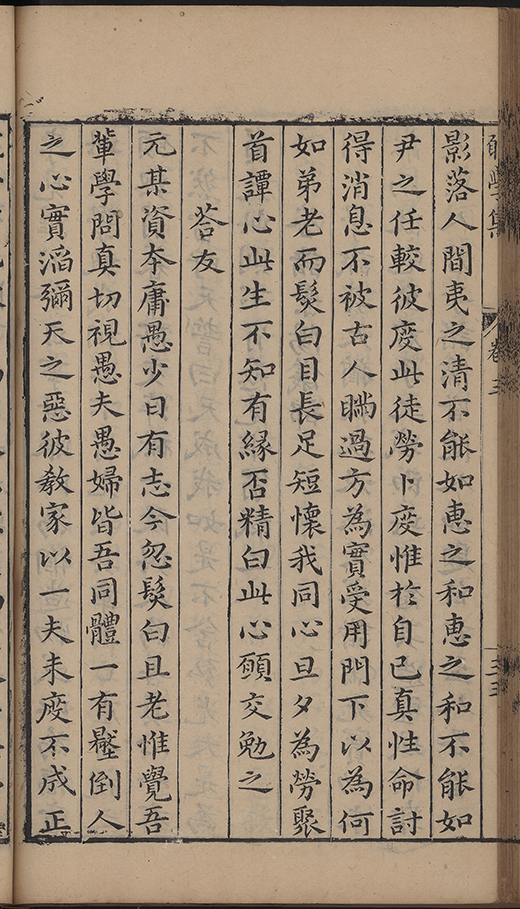 願學集 卷三 三三
影落人間夷之清不能如惠之和惠之和不能如
尹之任較彼度此徒勞卜度惟於自己真性命討
得消息不被古人瞞過方為實受用門下以為何
如弟老而髮白目長足短懷我同心旦夕為勞聚
首譚心此生不知有緣否精白此心願交勉之
荅友
元某資夲庸愚少日有志今忽髮白且老惟覺吾
軰學問真切視愚夫愚婦皆吾同體一有壓倒人
之心實滔彌天之惡彼教家以一夫未度不成正